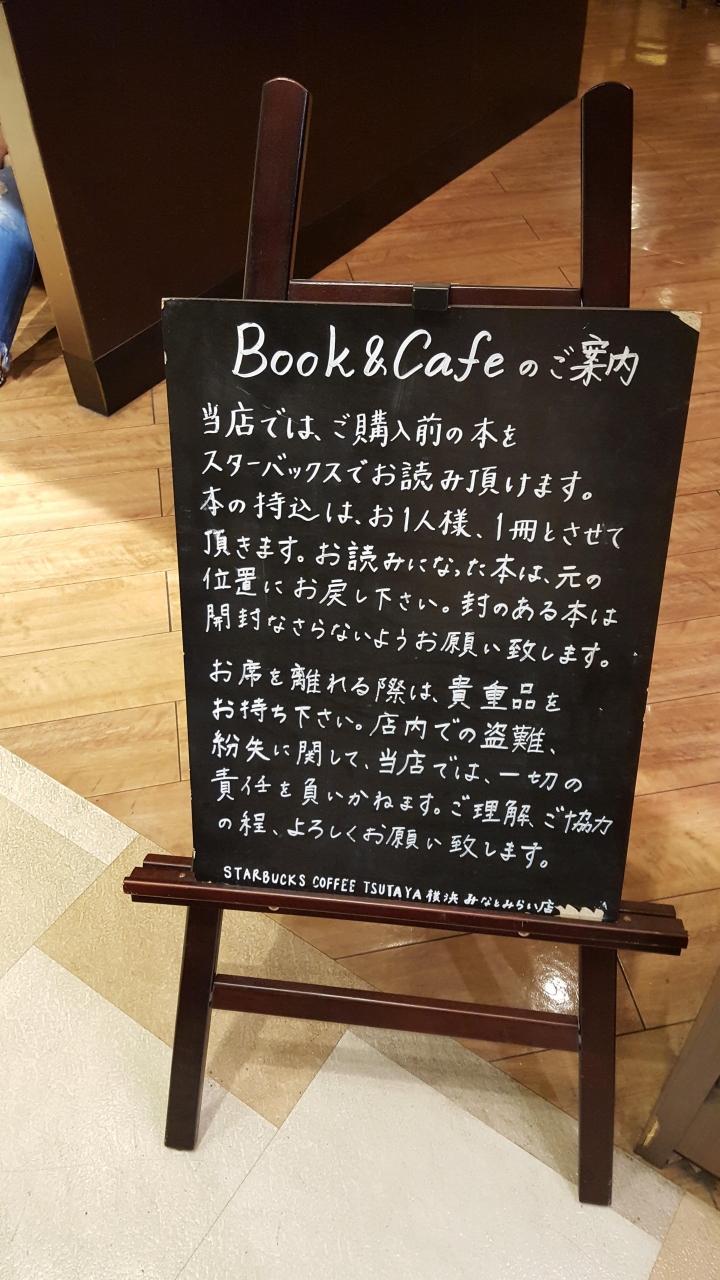 Book&Cafe のご案内
当店では、ご購入前の本を
スターバックスでお読み頂けます。
本の持込は、お1人様、1冊とさせて
頂きます。お読みになった本は、元の
位置にお戻し下さい。封のある本は
開封なさらないようお願い致します。
お席を離れる際は、貴重品を
お持ち下さい。店内での盗難、
紛失に関して、当店では、一切の
責任を負いかねます。ご理解、ご協力
の程、よろしくお願い致します。
STARBUCKS COFFEE TSUTAYA 横浜みなとみらい店